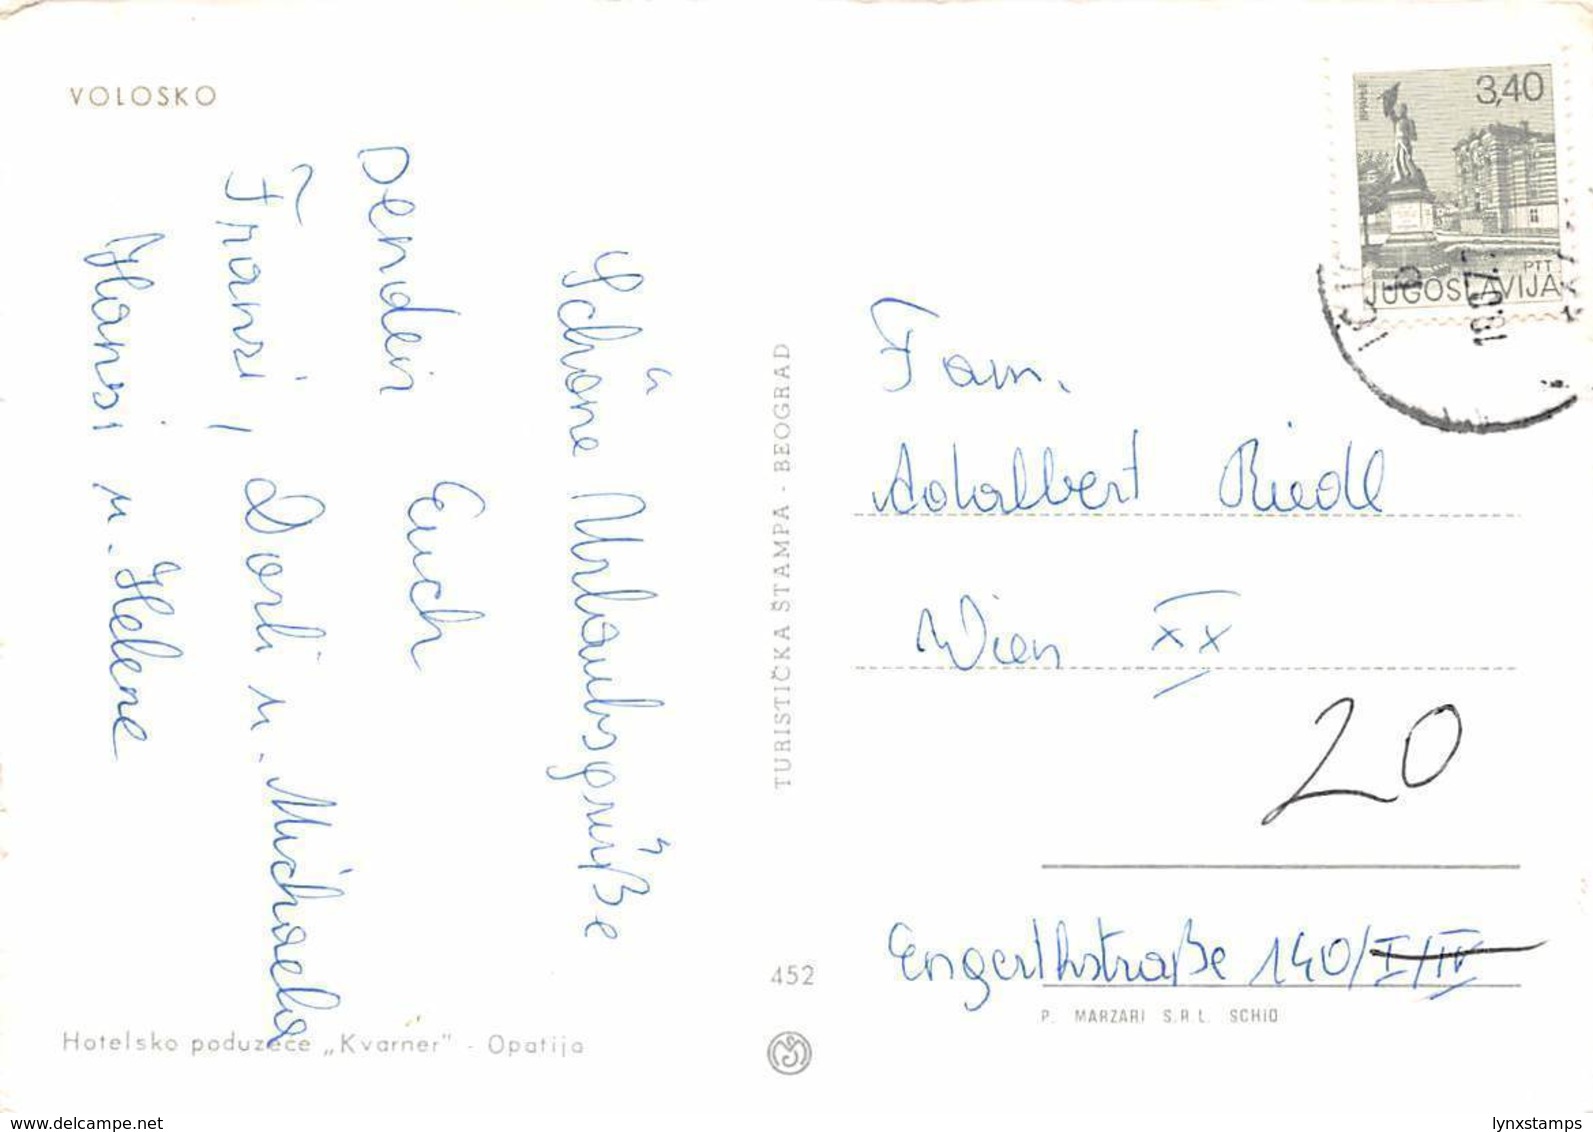 VOLOSKO
Schöne Urlaubsgrüße
Senden Euch
Franzi, Dorli u. Michaela
Hansi u. Helene
Hotelsko poduzeće „Kvarner" - Opatija
TURISTIČKA ŠTAMPA - BEOGRAD
452
3,40
PTT
JUGOSLAVIJA
18.07.
Fam.
Adalbert Riedl
Wien XX
20
Engerthstraße 140/I/IV
P. MARZARI S.R.L. SCHIO
www.delcampe.net
lynxstamps